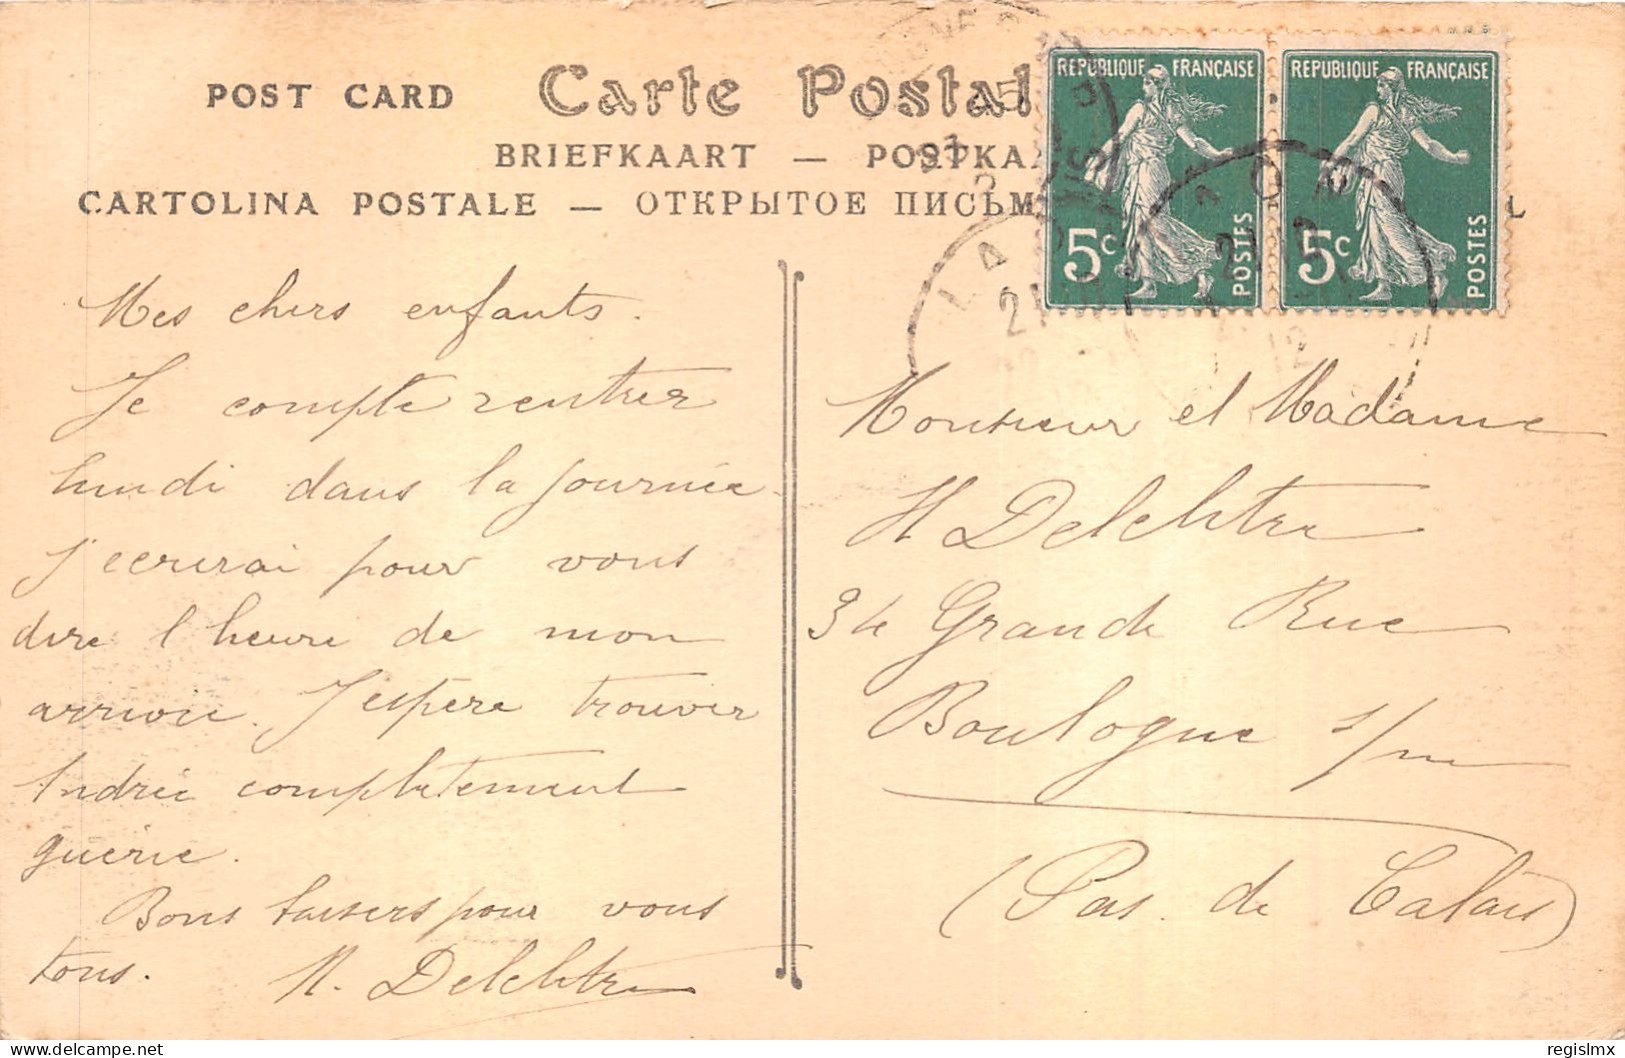 POST CARD Carte Postal
BRIEFKAART — POSTKA
CARTOLINA POSTALE — ОТКРЫТОЕ ПИСЬМ L
REPUBLIQUE FRANÇAISE
5c POSTES
REPUBLIQUE FRANÇAISE
5c POSTES
LAON
21
12
Mes chers enfants.
Je compte rentrer
lundi dans la journée
J'ecrirai pour vous
dire l heure de mon
arrivée. J'espère trouver
Andrée completement
guérie.
Bons baisers pour vous
tous.
Monsieur et Madame
H Delehtre
34 Grande Rue
Boulogne s/m
(Pas. de Calais)
regislmx
delcampe.net